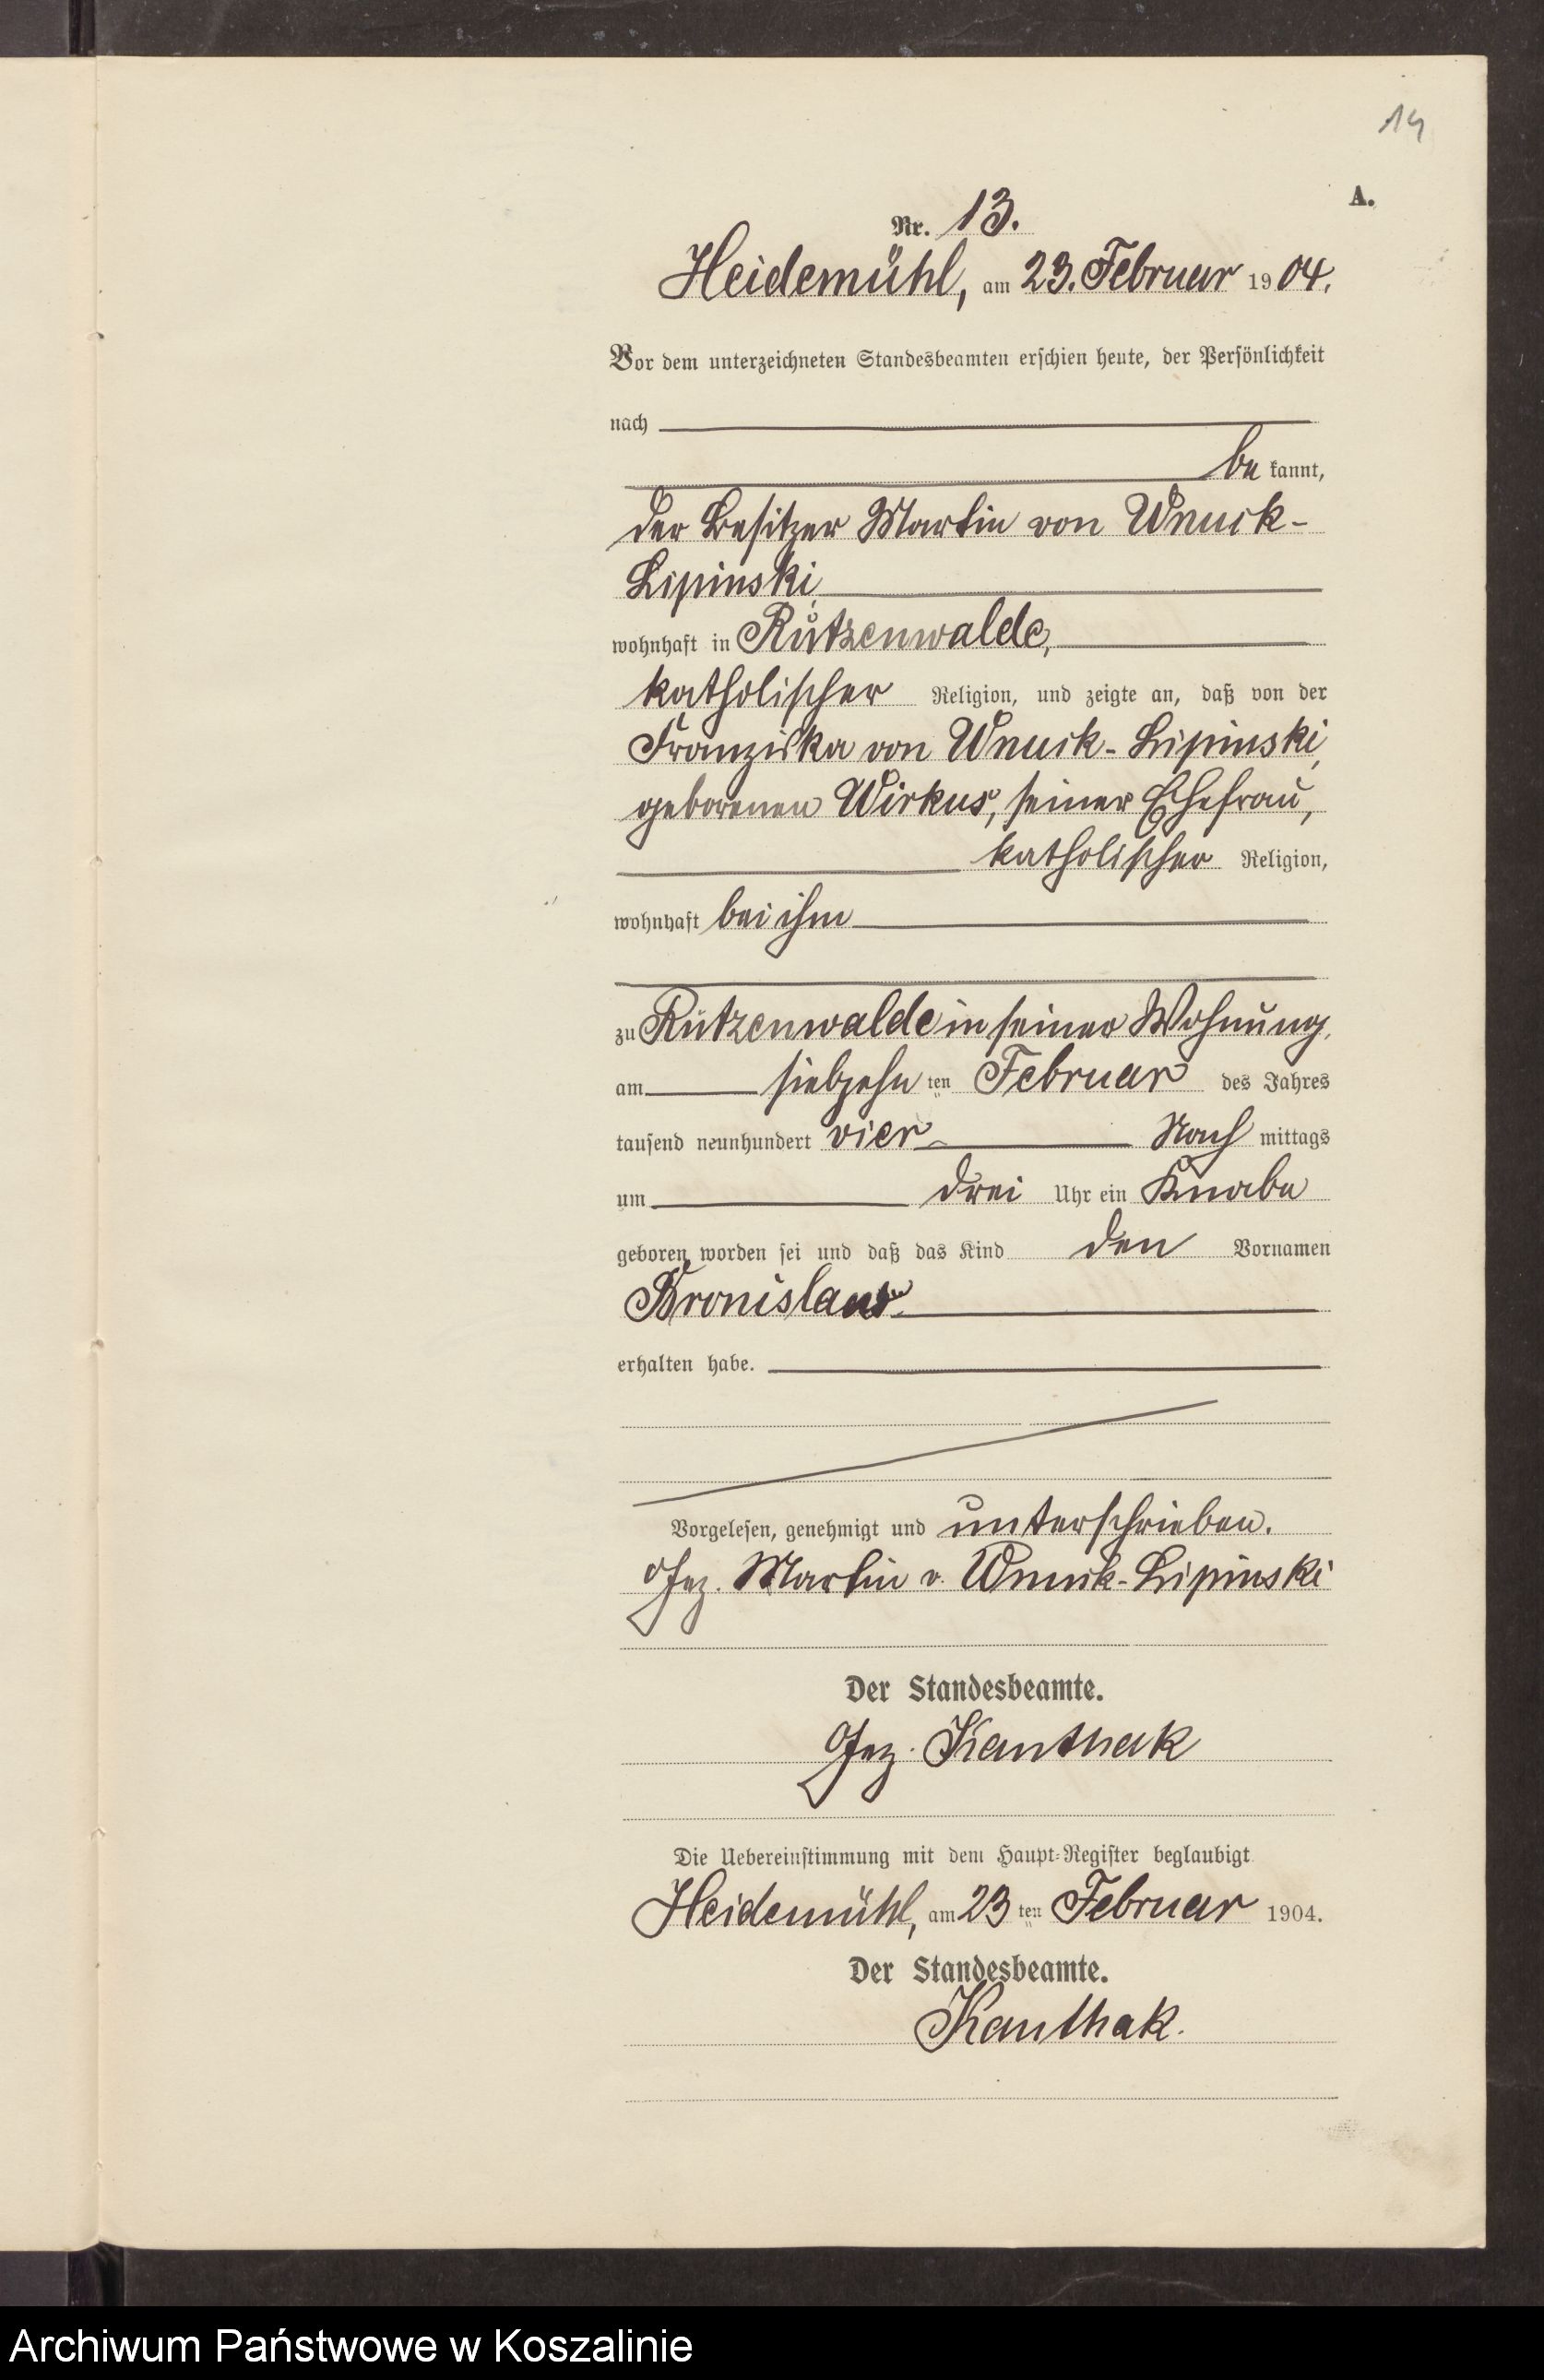 14
A.
Nr. 13.
Heidemühl, am 23. Februar 1904.
Vor dem unterzeichneten Standesbeamten erschien heute, der Persönlichkeit
nach
bekannt,
der Besitzer Martin von Wnuck-
Lipinski,
wohnhaft in Rützenwalde,
katholischer Religion, und zeigte an, daß von der
Franziska von Wnuck-Lipinski,
geborenen Wirkus, seiner Ehefrau,
katholischer Religion,
wohnhaft bei ihm
zu Rützenwalde in seiner Wohnung,
am siebzehn ten Februar des Jahres
tausend neunhundert vier Nachmittags
um drei Uhr ein Knabe
geboren worden sei und daß das Kind den Vornamen
Bronislaw
erhalten habe.
Vorgelesen, genehmigt und unterschrieben.
Gez. Martin v. Wnuck-Lipinski
Der Standesbeamte.
Gez. Kanthak
Die Uebereinstimmung mit dem Haupt-Register beglaubigt
Heidemühl, am 23 ten Februar 1904.
Der Standesbeamte.
Kanthak.
Archiwum Państwowe w Koszalinie